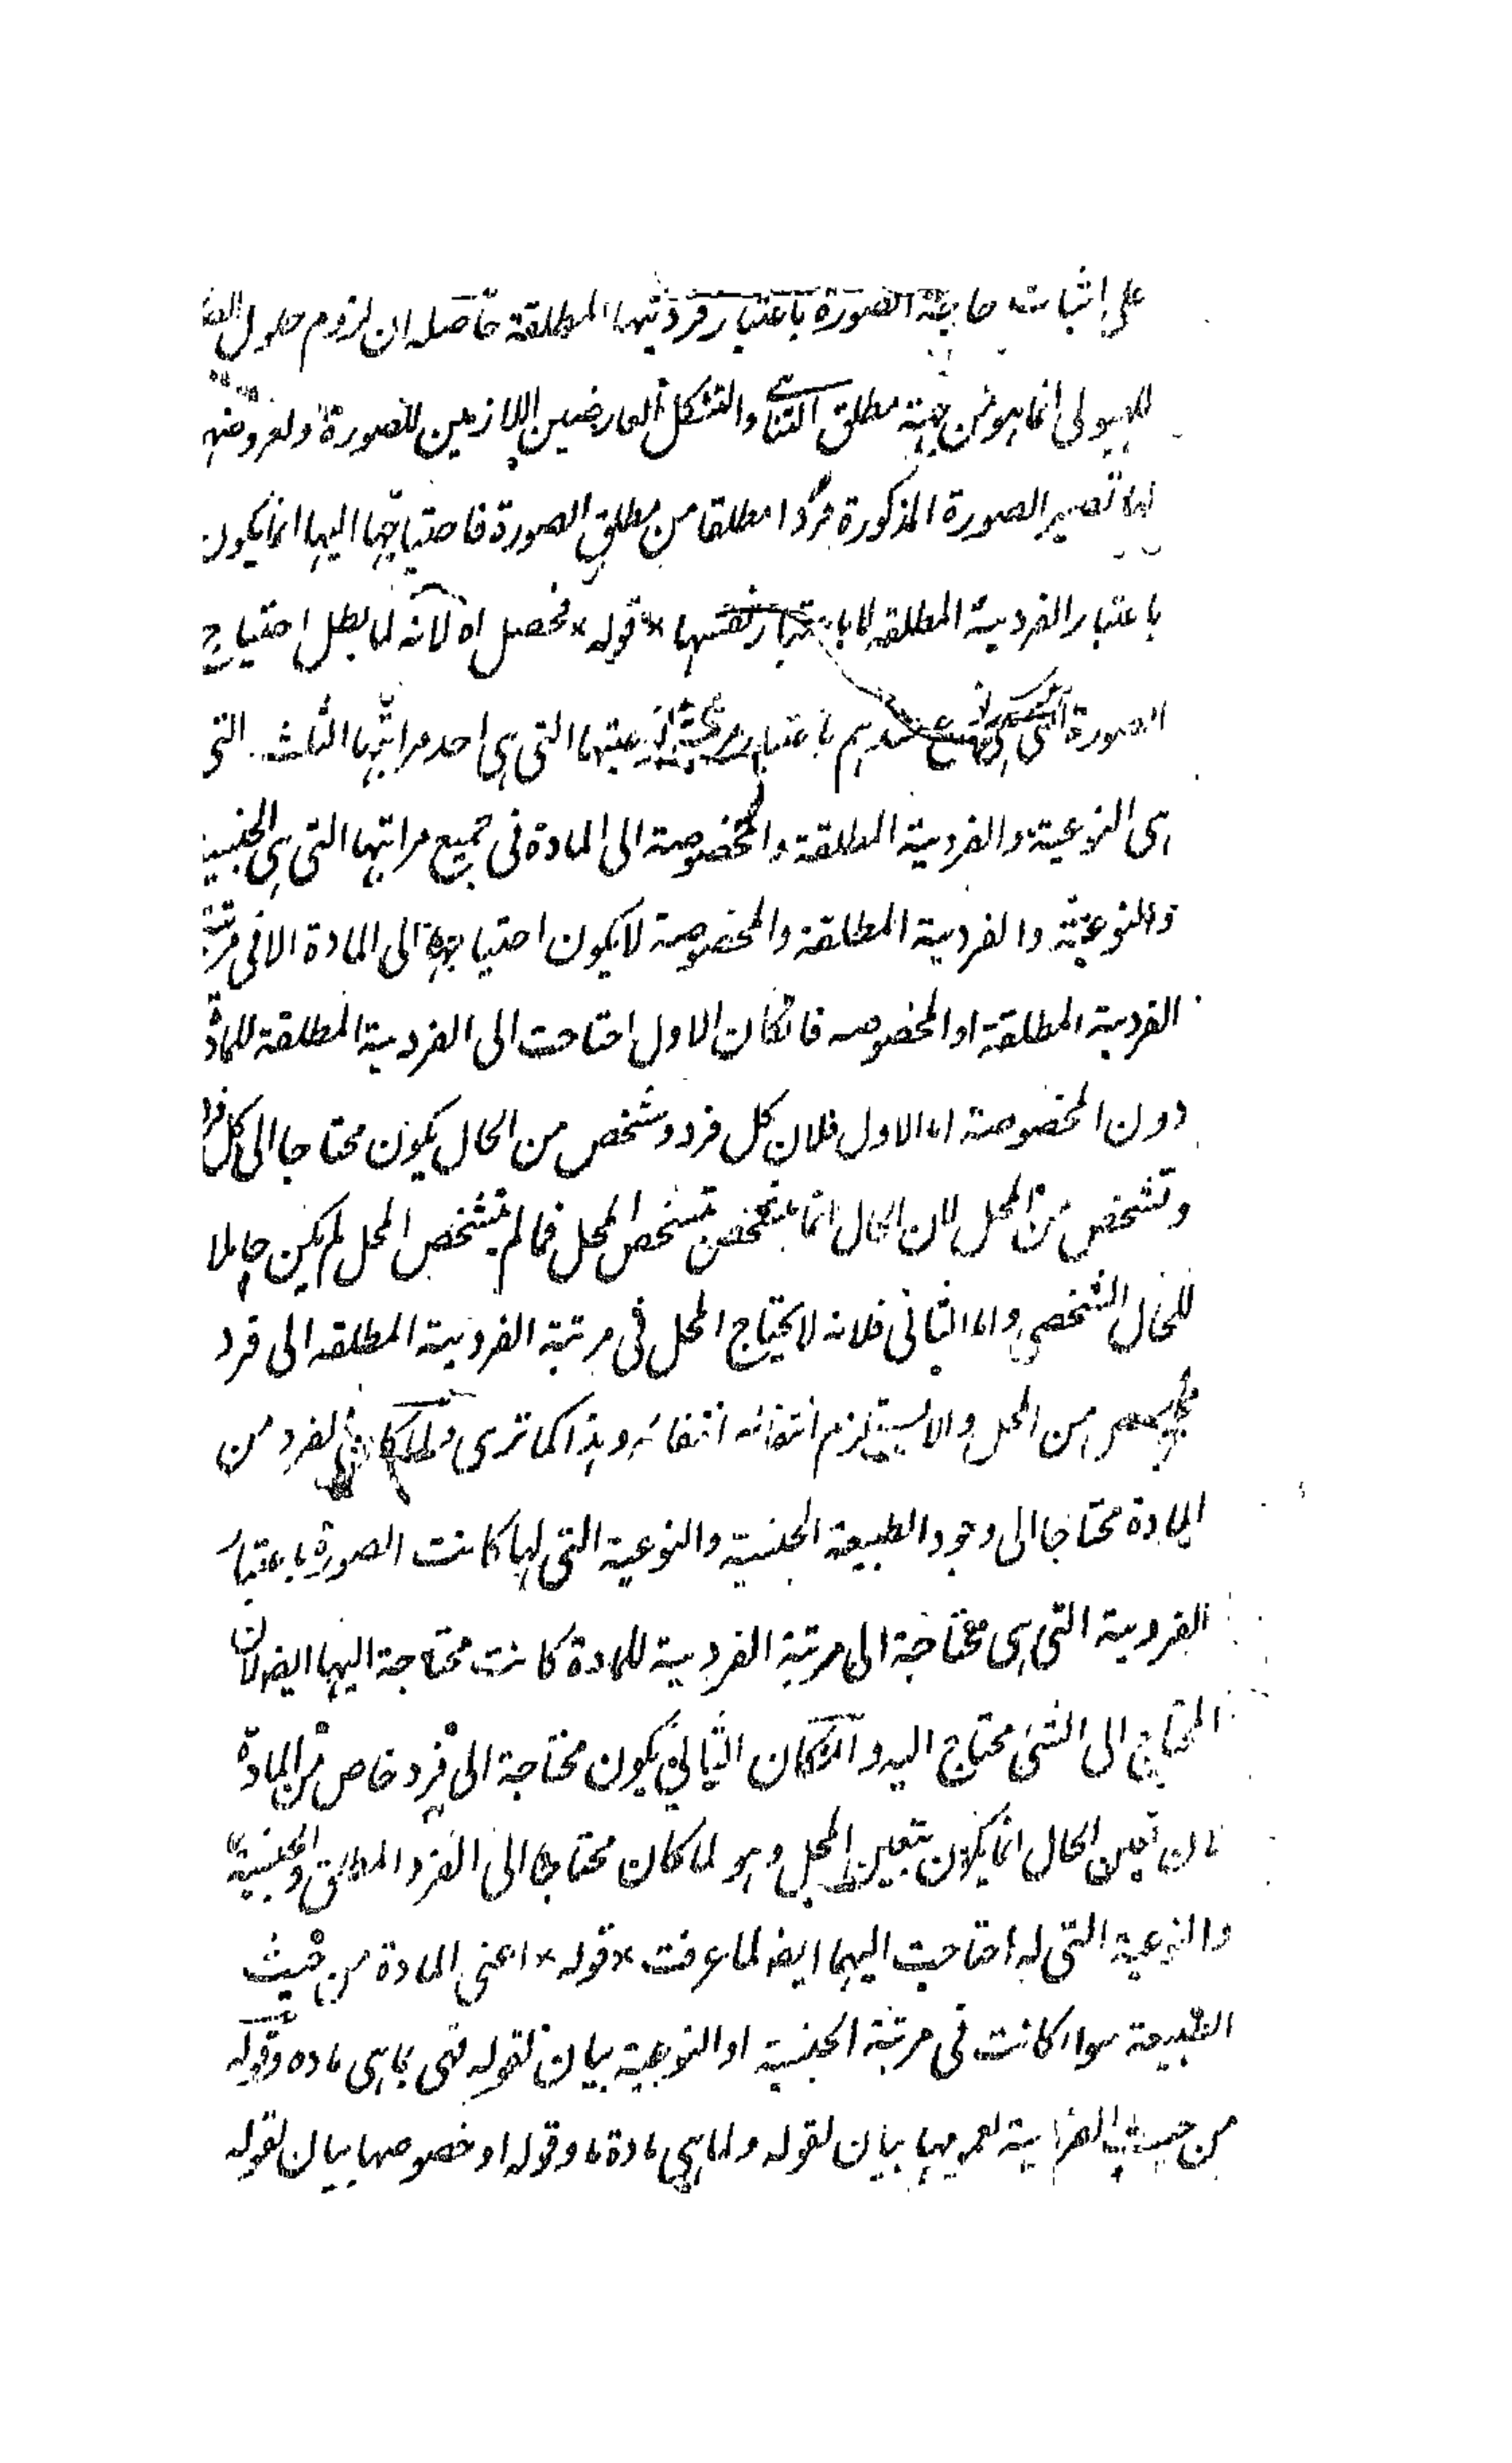 على اثبات حاجة الصورة باعتبار فرديتها المطلقة حاصله ان لزوم حلول
للهيولى انما هو من جهة مطلق التناهي والتشكل العارضين اللازمين للصورة ولعروضهما
لها تصير الصورة المذكورة فردا مطلقا من مطلق الصورة فاحتياجها اليها انما يكون
باعتبار الفردية المطلقه لا باعتبار نفسها * قوله * فحصل اه لانه لما بطل احتياج
الصورة التي باعتبار التي هي احد مراتبها الثلث التي
هى النوعية والفردية المطلقة والمخصوصة الى المادة فى جميع مراتبها التي هي الجنسية
والنوعية والفردية المطلقة والمخصوصة لا يكون احتياجها الى المادة الا فى مرتبة
الفردية المطلقة او المخصوصه فانكان الاول احتاجت الى الفردية المطلقة للمادة
دون المخصوصة اما الاول فلان كل فرد وشخص من الحال يكون محتاجا الى كل فرد
وتشخص من المحل لان الحال انما يتشخص بتشخص المحل فما لم يتشخص المحل لم يكن حاملا
للحال الشخصي واما الثانى فلانه لا يحتاج المحل فى مرتبة الفردية المطلقه الى فرد
من المحل والا يستلزم انتفائه انتفائه وهذا كما ترى ولما كان الفرد من
المادة محتاجا الى وجود الطبيعة الجنسية والنوعية التي لها كانت الصورة باعتبار
الفردية التي هي محتاجة الى مرتبة الفردية للمادة كانت محتاجة اليها ايضا لان
المحتاج الى الشئ محتاج اليه وانكان الثاني يكون محتاجة الى فرد خاص من المادة
لان تعين الحال انما يكون بتعين المحل وهو لما كان محتاجا الى الفرد المطلق والجنسية
والنوعية التي له احتاجت اليهما ايضا لما عرفت * قوله * اعنى المادة من حيث
الطبيعة سواء كانت فى مرتبة الجنسية او النوعية بيان لقوله فهى بما هى ماده وقوله
من حيث الفردية لعمومها بيان لقوله ولما هى مادة ما وقوله او خصوصها بيان لقوله